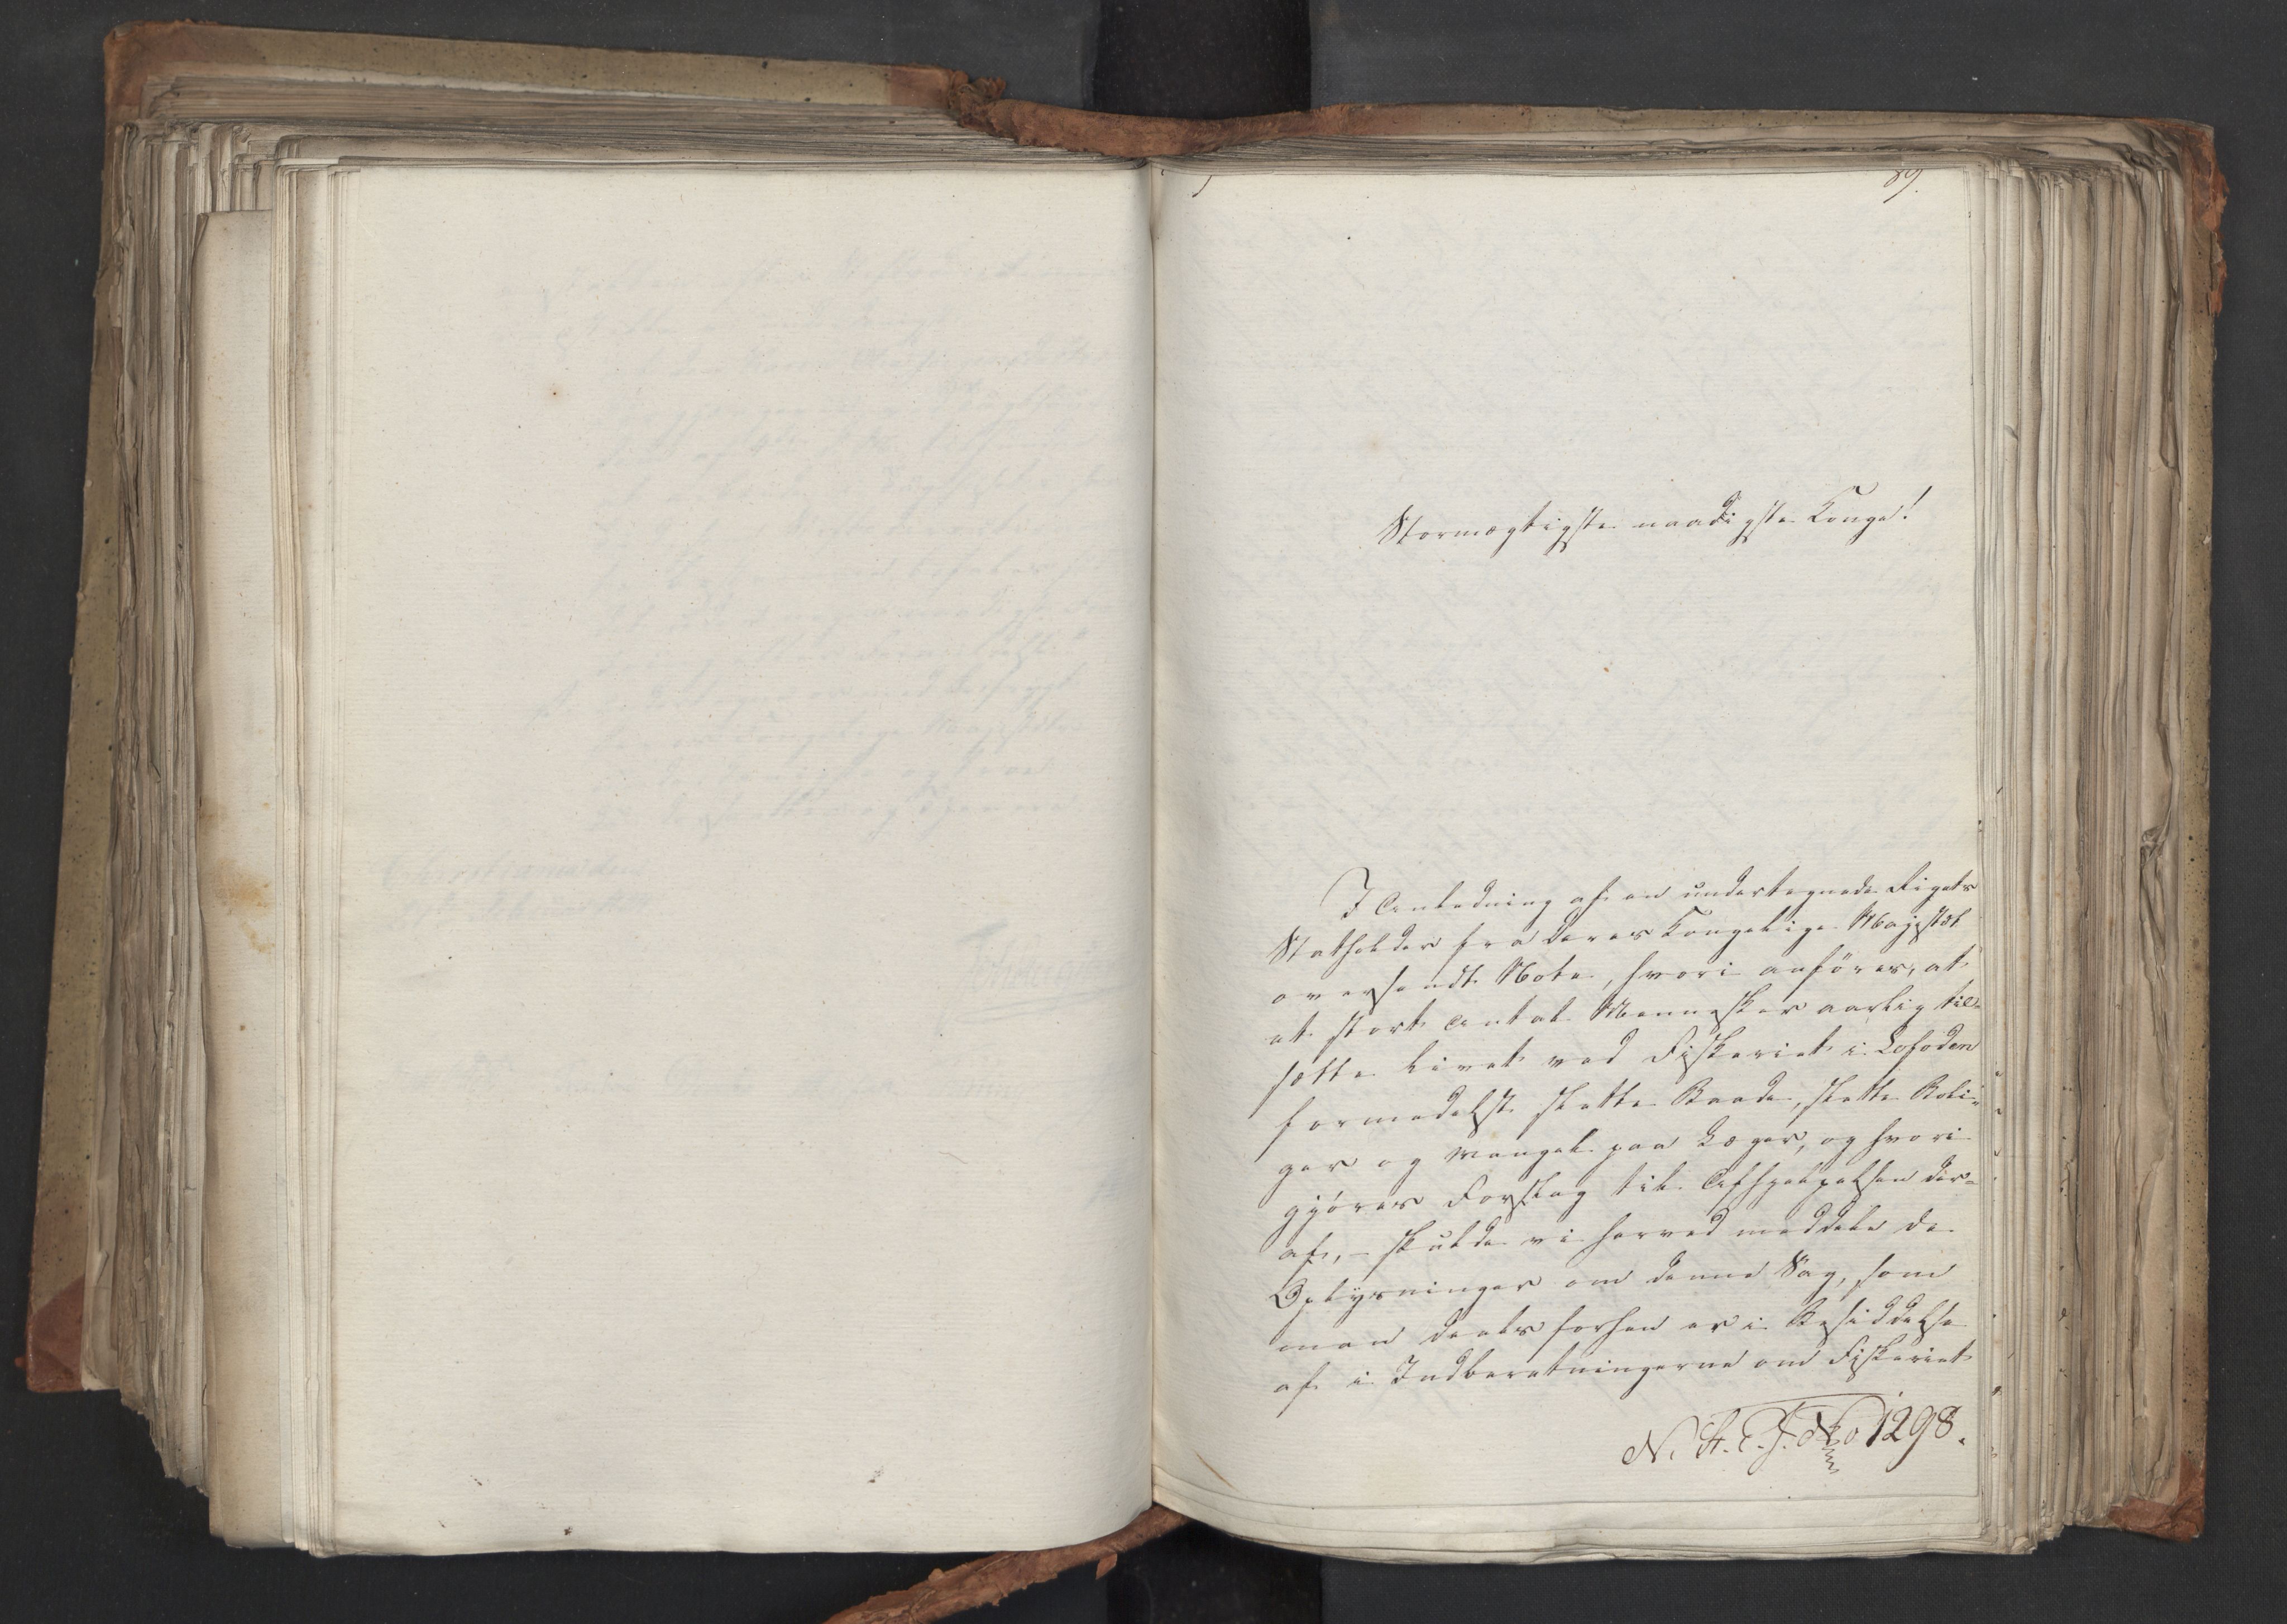 89.
Stormægtigste naadigste Konge!
I Anledning af en undertegnede Rigets
Statholder fra Deres Kongelige Majestæt
oversendt Note, hvori anföres, at
et stort Antal Mennesker aarlig til-
sætte Livet ved Fiskeriet i Lofoden
formedelst slette Baade, slette Boli-
ger og Mangel paa Læger, og hvori
gjöres Forslag til Afhjelpelsen der-
af, – skulde vi herved meddele de
Oplysninger om denne Sag, som
man deels forhen er i Besiddelse
af i Indberetningerne om Fiskeriet
N. St. C. J. No 1298.